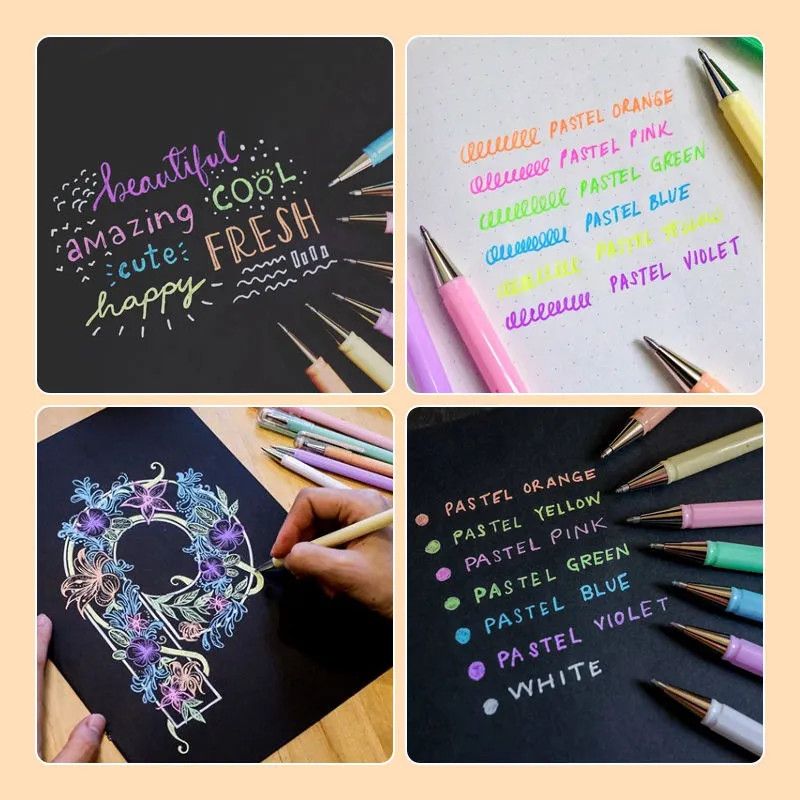 beautiful
COOL
amazing
cute
FRESH
happy
PASTEL ORANGE
PASTEL PINK
PASTEL GREEN
PASTEL BLUE
PASTEL YELLOW
PASTEL VIOLET
P
PASTEL ORANGE
PASTEL YELLOW
PASTEL PINK
PASTEL GREEN
PASTEL BLUE
PASTEL VIOLET
WHITE